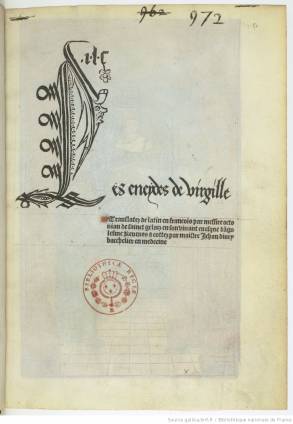 962 972
Les eneydes de virgille
Translatez de latin en francois par messire octo
uian de sainct gelaiz en son viuant euesque dāgo
lesme Reueues & cottez par maistre Jehan diury
bachelier en medecine
BIBLIOTHECA REGIA
Source gallica.bnf.fr / Bibliothèque nationale de France